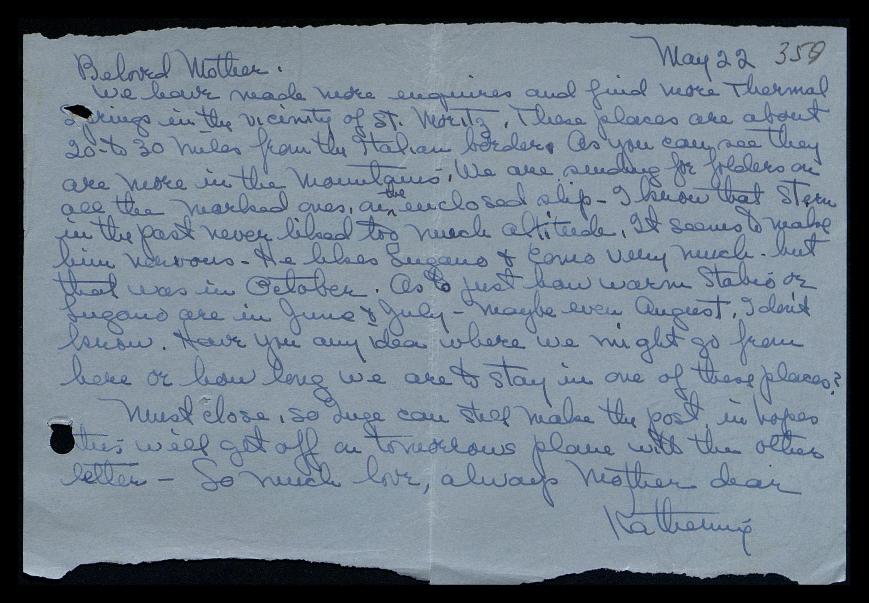 May 22 350
Beloved Mother.
We have made more enquires and find more Thermal
Springs in the vicinity of St. Moritz. These places are about
20 to 30 miles from the Italian border. As you can see they
are more in the mountains. We are sending for folders on
all the marked ones, on the enclosed slip - I know that Stern
in the past never liked too much altitude. It seems to make
him nervous - He likes Lugano & Como very much - but
that was in October. As to just how warm Stabio or
Lugano are in June & July - maybe even August, I don't
know. Have you any idea where we might go from
here or how long we are to stay in one of these places?
Must close, so Inge can still make the post, in hopes
this will get off on tomorrows plane with the other
letter - So much love, always Mother dear
Katherine